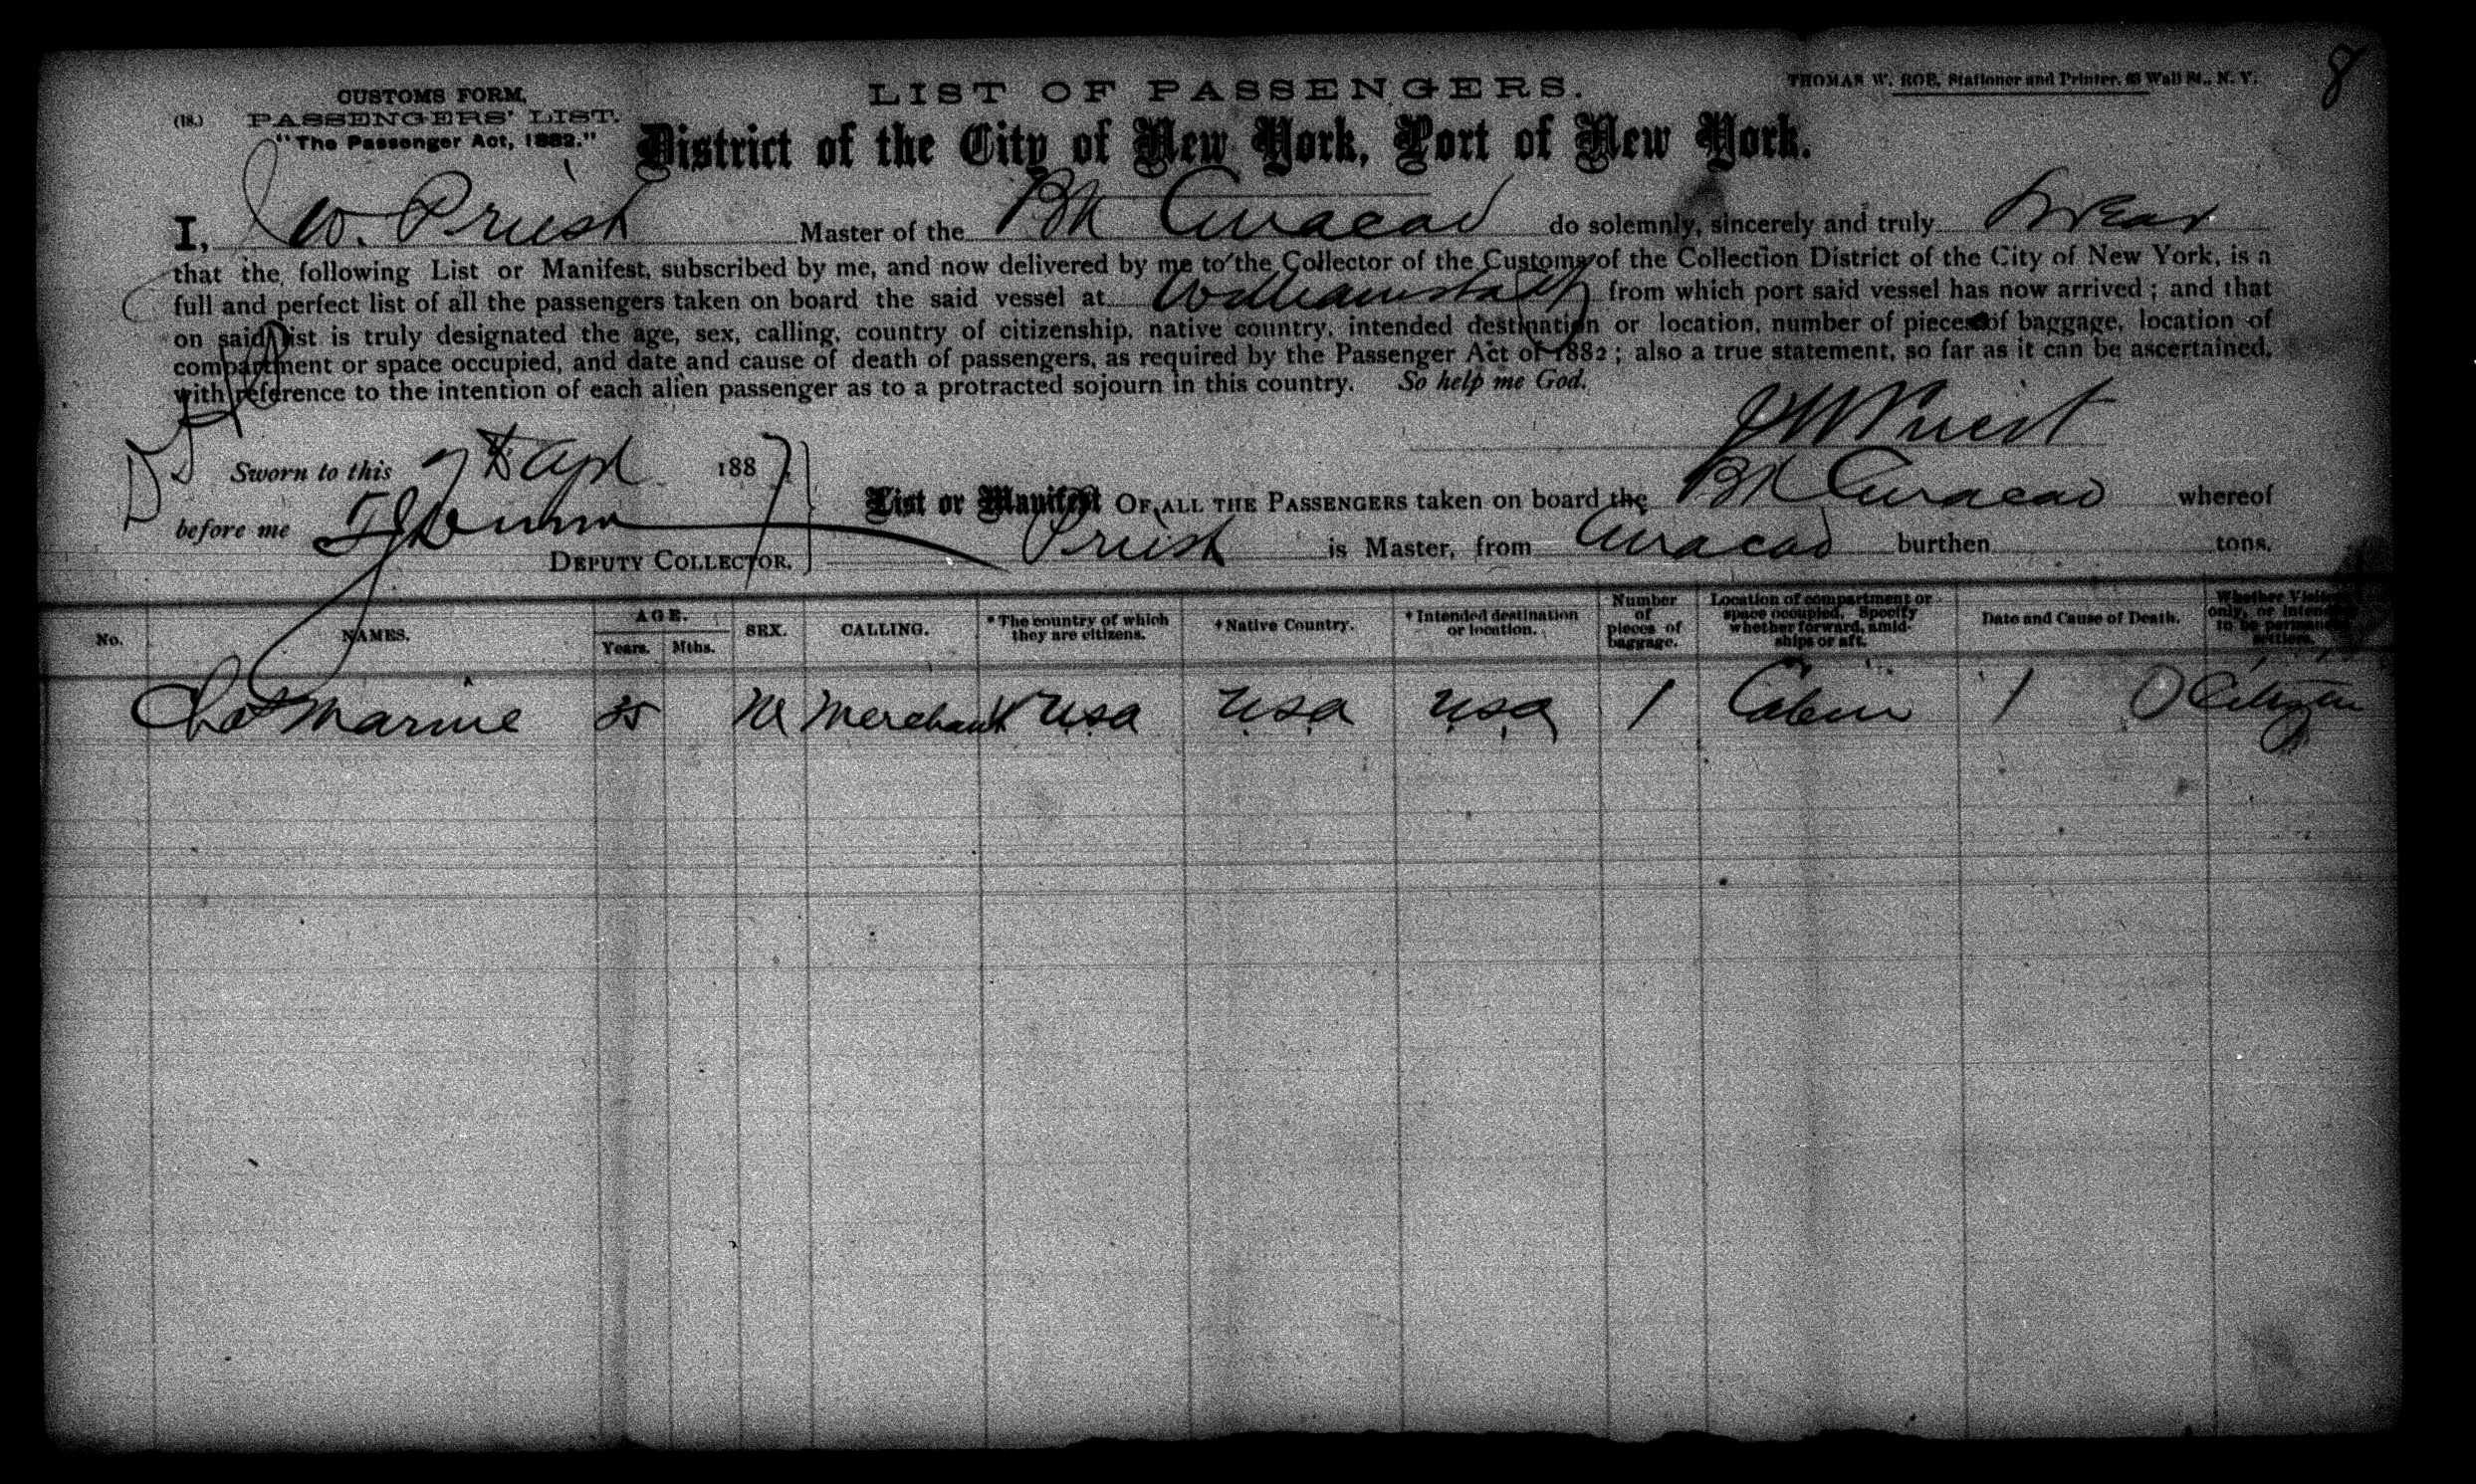 8
CUSTOMS FORM,
(18.) PASSENGERS' LIST.
"The Passenger Act, 1882."
LIST OF PASSENGERS.
THOMAS W. ROE, Stationer and Printer, Wall St., N. Y.
District of the City of New York, Port of New York.
I, J W. Priest Master of the Bk Curacao do solemnly, sincerely and truly swear
that the following List or Manifest, subscribed by me, and now delivered by me to the Collector of the Customs of the Collection District of the City of New York, is a
full and perfect list of all the passengers taken on board the said vessel at from which port said vessel has now arrived; and that
on said list is truly designated the age, sex, calling, country of citizenship, native country, intended destination or location, number of pieces of baggage, location of
compartment or space occupied, and date and cause of death of passengers, as required by the Passenger Act of 1882; also a true statement, so far as it can be ascertained,
with reference to the intention of each alien passenger as to a protracted sojourn in this country. So help me God.
JW Priest
Sworn to this 7th Apl 1887
before me
DEPUTY COLLECTOR.
List or Manifest OF ALL THE PASSENGERS taken on board the Bk Curacao whereof
Priest is Master, from Curacao burthen tons.
No. NAMES. AGE. Years. Mths. SEX. CALLING. *The country of which they are citizens. †Native Country. *Intended destination or location. Number of pieces of baggage. Location of compartment or space occupied. Specify whether forward, amidships or aft. Date and Cause of Death. Whether Visiting only, or intending to be permanent settlers.
Chas Marine 35 M Merchant USA USA USA 1 Cabin 1 0 Citizen